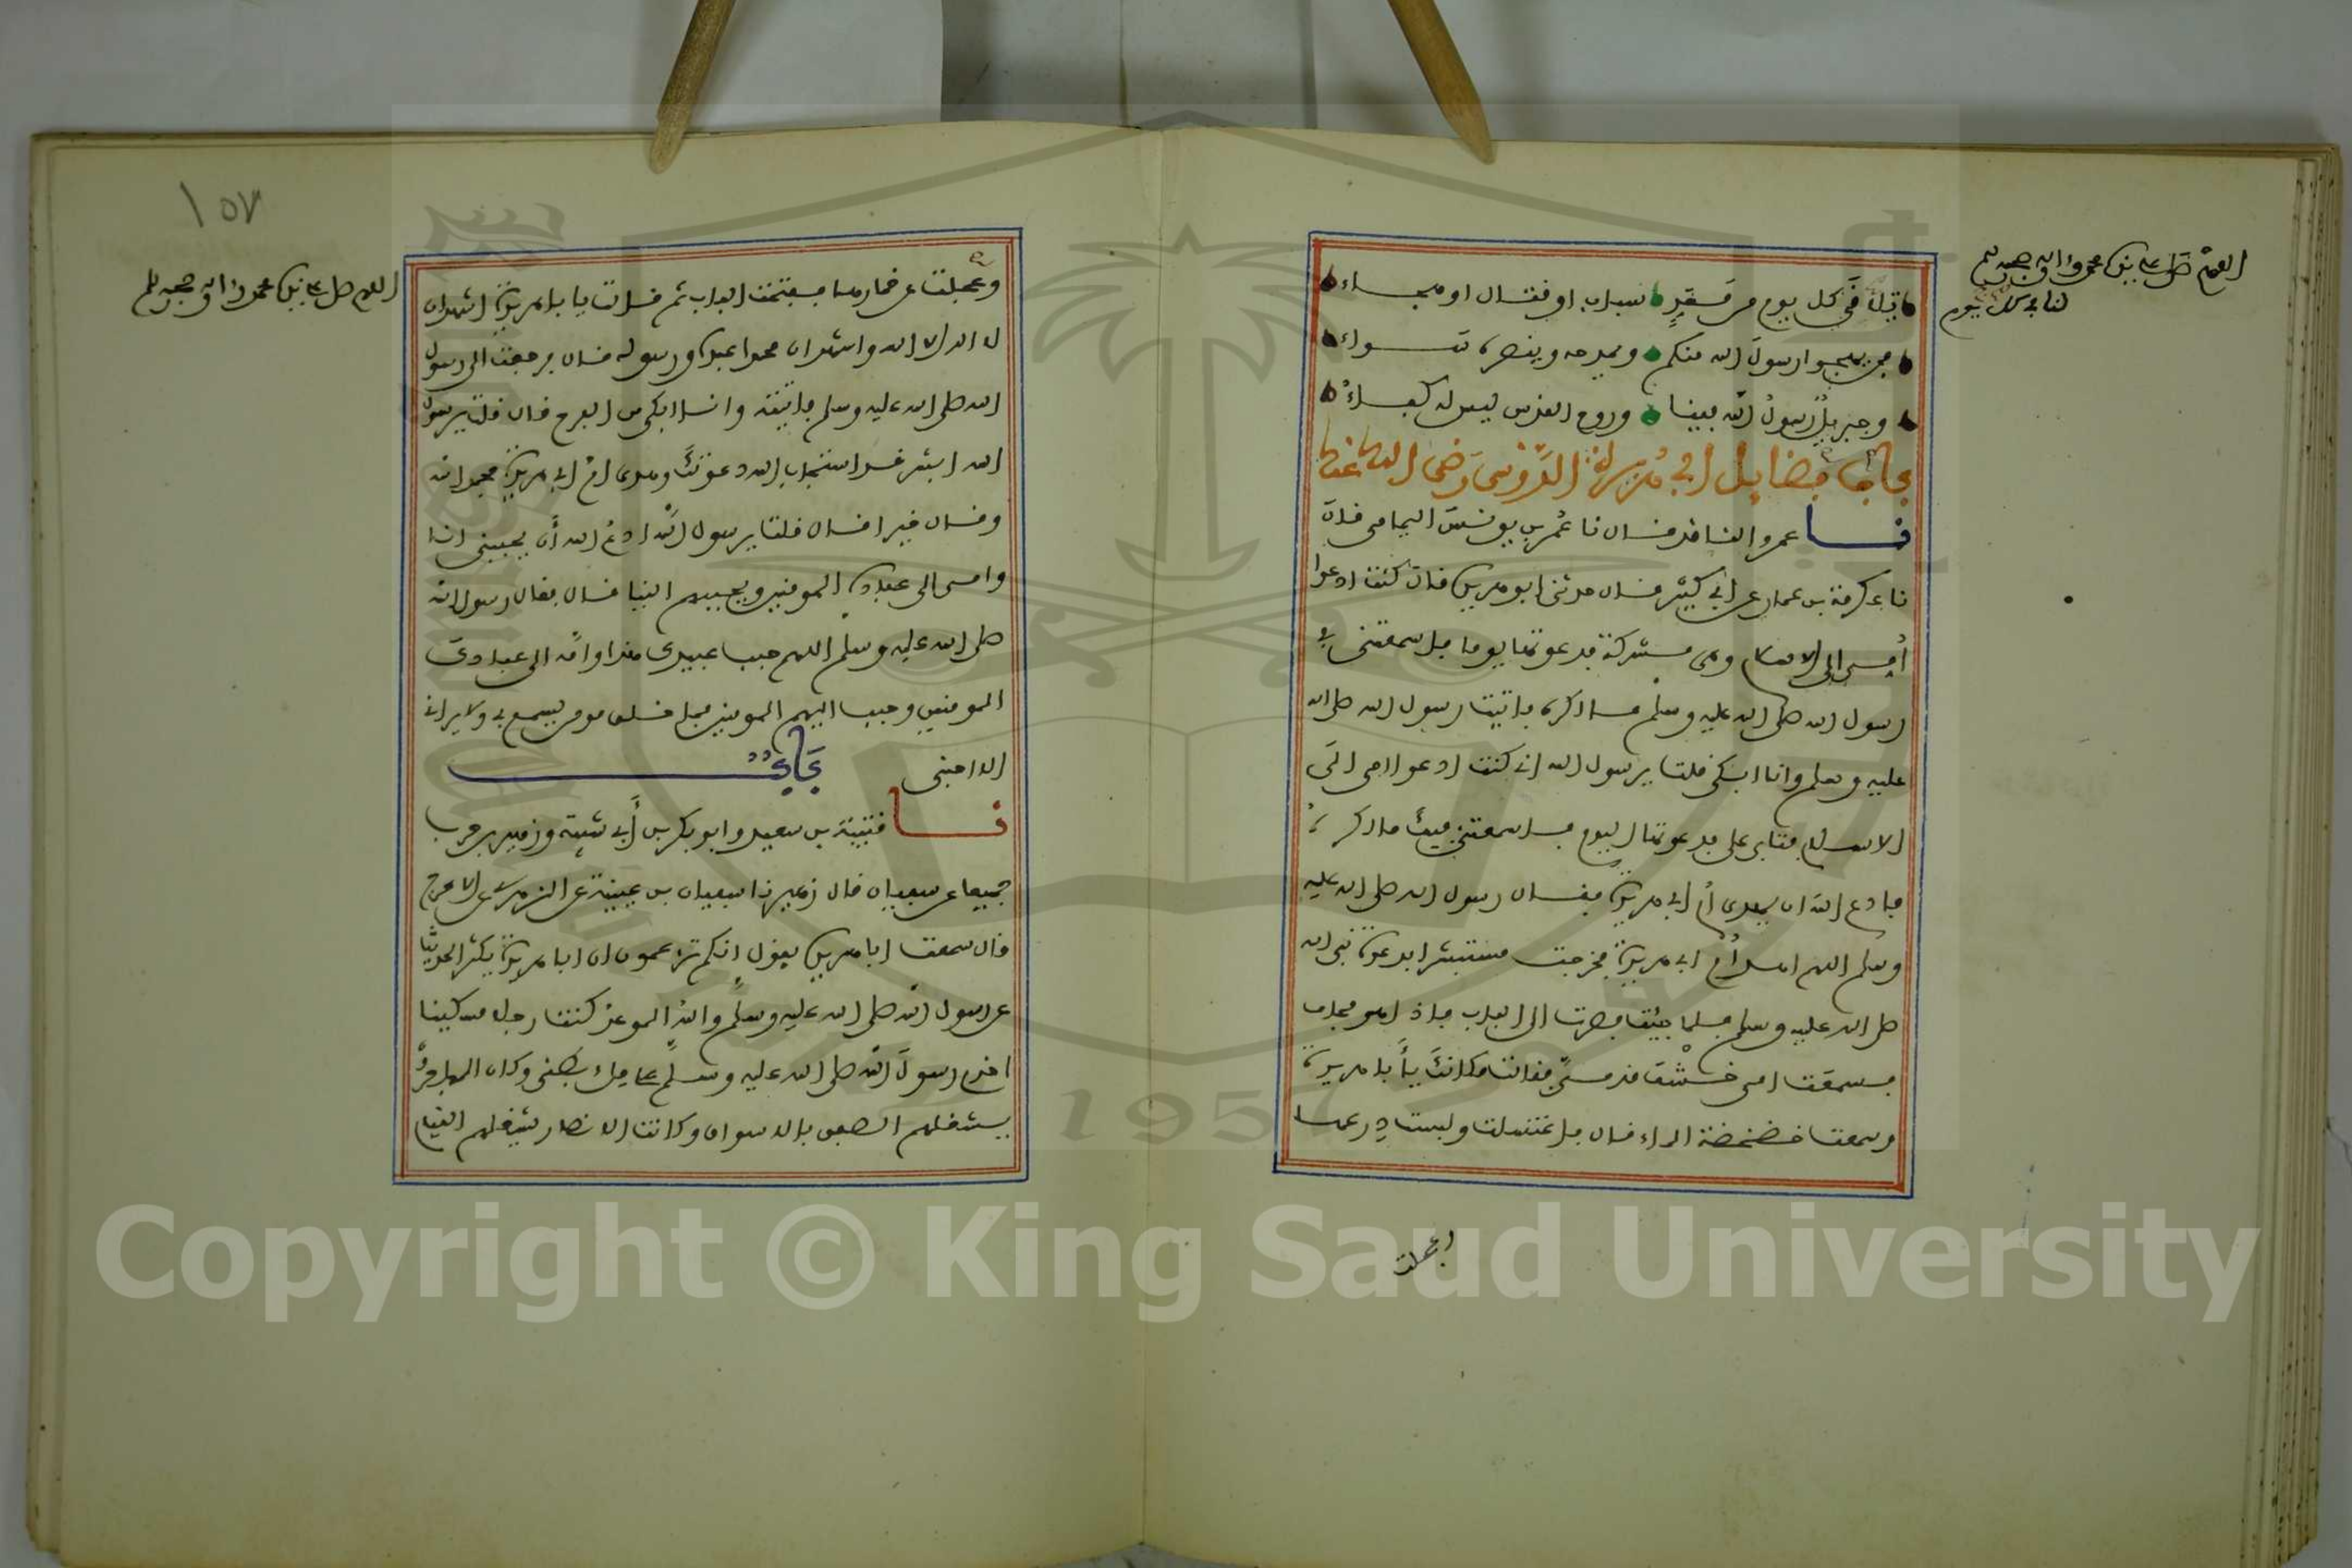 اللهم صل على نبينا محمد واله وصحبه وسلم
لنا في كل يوم
تلاقي كل يوم من معد سباب او قتال او هجاء
فمن يهجوا رسول الله منكم ويمدحه وينصره سواء
وجبريل رسول الله فينا وروح القدس ليس له كفاء
باب فضايل ابي هريرة الدوسي رضي الله عنه
نا عمرو الناقد قال نا عمر بن يونس اليمامي قال
نا عكرمة بن عمار عن ابي كثير قال حدثني ابو هريرة قال كنت ادعوا
امي الى الاسلام وهي مشركة فدعوتها يوما فاسمعتني في
رسول الله صلى الله عليه وسلم ما اكره فاتيت رسول الله صلى الله
عليه وسلم وانا ابكي قلت يرسول الله اني كنت ادعوا امي الى
الاسلام فتابى علي فدعوتها اليوم فاسمعتني فيك ما اكره
فادع الله ان يهدي ام ابي هريرة فقال رسول الله صلى الله عليه
وسلم اللهم اهد ام ابي هريرة فخرجت مستبشرا بدعوة نبي الله
صلى الله عليه وسلم فلما جيت فصرت الى الباب فاذا هو مجاف
فسمعت امي خشف قدمي فقالت مكانك يأبا هريرة
وسمعت خضخضة الماء قال فاغتسلت ولبست درعها
وعجلت
١٥٧
اللهم صل على نبينا محمد واله وصحبه وسلم
وعجلت عن خمارها ففتحت الباب ثم قالت يا با هريرة اشهد ان
لا اله الا الله واشهد ان محمدا عبده ورسوله قال فرجعت الى رسول
الله صلى الله عليه وسلم فاتيته وانا ابكي من الفرح قال قلت يرسول
الله ابشر قد استجاب الله دعوتك وهدى ام ابي هريرة فحمد الله
وقال خيرا قال قلت يرسول الله ادع الله أن يحببني انا
وامي الى عباده المومنين ويحببهم الينا قال فقال رسول الله
صلى الله عليه وسلم اللهم حبب عبيدك هذا وامه الى عبادك
المومنين وحبب اليهم المومنين فما خلق مومن يسمع بي ولا يراني
الا احبني باب
نا قتيبة بن سعيد وابو بكر بن أبي شيبة وزهير بن حرب
جميعا عن سفيان قال زهير نا سفيان بن عيينة عن الزهري عن الاعرج
قال سمعت ابا هريرة يقول انكم تزعمون ان ابا هريرة يكثر الحديث
عن رسول الله صلى الله عليه وسلم والله الموعد كنت رجلا مسكينا
اخدم رسول الله صلى الله عليه وسلم على ملء بطني وكان المهاجرون
يشغلهم الصفق بالاسواق وكانت الانصار يشغلهم القيام
Copyright © King Saud University
1957